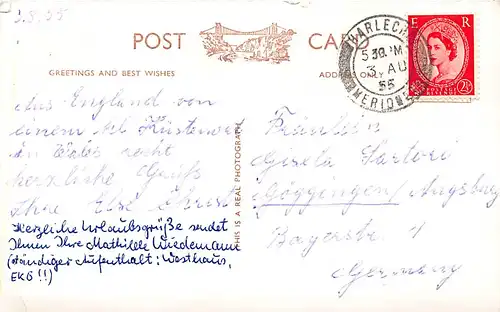 3.8.55
POST CARD
GREETINGS AND BEST WISHES
ADDRESS ONLY
HARLECH
5 30 PM
3 AU
55
MERIONETH
E R
POSTAGE REVENUE
2½
THIS IS A REAL PHOTOGRAPH
Aus England von
einem
in Wales recht
herzliche Grüße
Ihre Else Christ
Herzliche Urlaubsgrüße sendet
Ihnen Ihre Mathilde Wiedemann
(ständiger Aufenthalt: Westhaus,
EKG!!)
Fräulein
Gisela Sartori
Göggingen / Augsburg
Bayerstr. 1
Germany